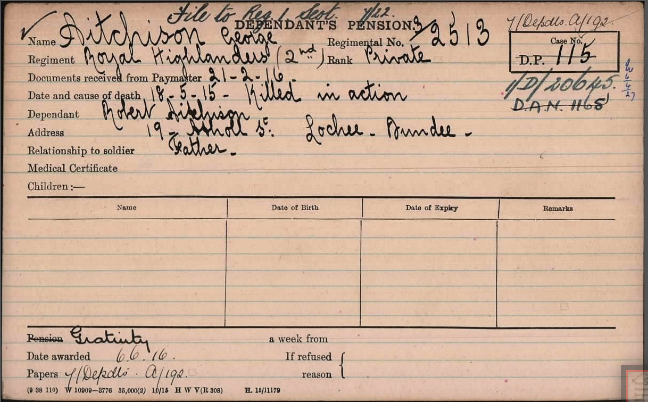 File to Reg. 1 Sept. 1/22. Y/Depdts. A/192.
DEPENDANT'S PENSION.
Name Aitchison George Regimental No. 3/2513 Case No.
Regiment Royal Highlanders (2nd) Rank Private D.P. 115
Documents received from Paymaster 21-2-16. 1/D/20645.
Date and cause of death 18-5-15 - Killed in action D.A.N. 1165
Dependant Robert Aitchison
Address 19 - Atholl St: Lochee - Dundee -
Relationship to soldier Father -
Medical Certificate
Children :—
Name Date of Birth Date of Expiry Remarks
Pension Gratuity a week from
Date awarded 6.6.16. If refused {
Papers Y/Depdts. A/192. reason
(9 38 110) W 10909—3776 35,000(2) 10/15 H W V(R 308) H. 15/11179